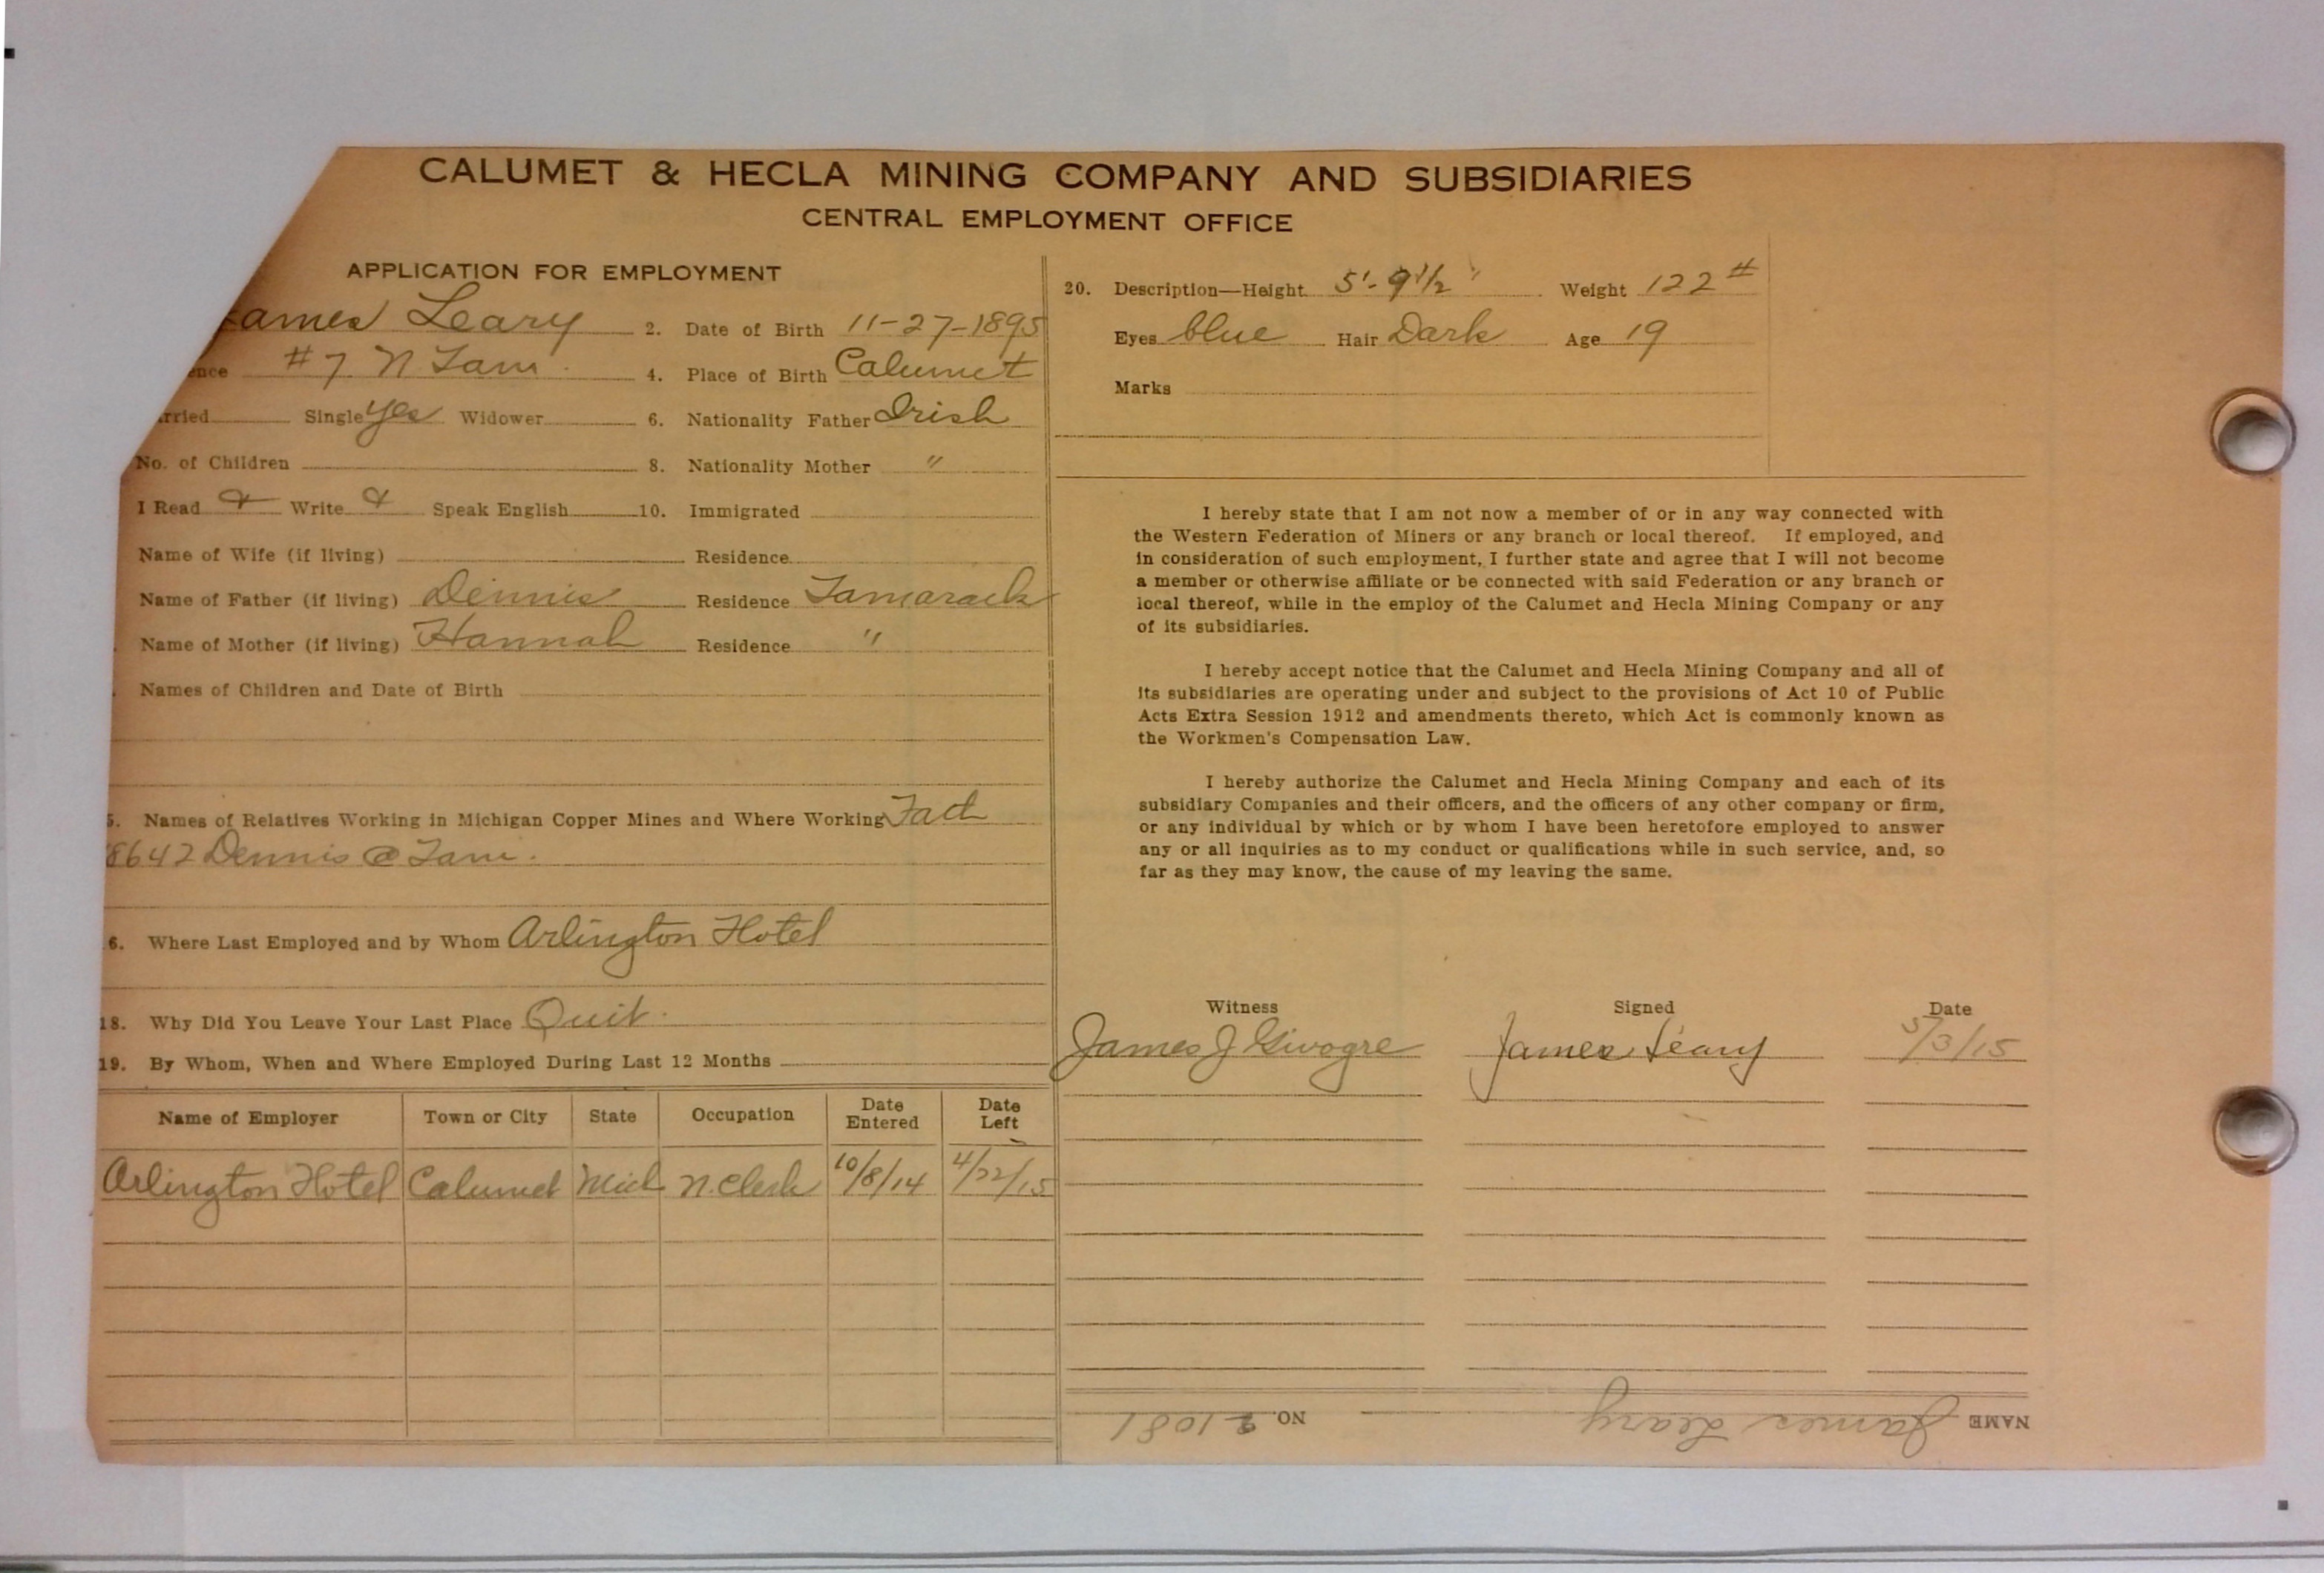 CALUMET & HECLA MINING COMPANY AND SUBSIDIARIES
CENTRAL EMPLOYMENT OFFICE
APPLICATION FOR EMPLOYMENT
James Leary 2. Date of Birth 11-27-1895
ence #7 N Tam. 4. Place of Birth Calumet
rried Single yes Widower 6. Nationality Father Irish
No. of Children 8. Nationality Mother "
I Read & Write & Speak English 10. Immigrated
Name of Wife (if living) Residence
Name of Father (if living) Dennis Residence Tamarack
Name of Mother (if living) Hannah Residence "
Names of Children and Date of Birth
5. Names of Relatives Working in Michigan Copper Mines and Where Working Fath
8642 Dennis @ Tam.
6. Where Last Employed and by Whom Arlington Hotel
18. Why Did You Leave Your Last Place Quit.
19. By Whom, When and Where Employed During Last 12 Months
Name of Employer Town or City State Occupation Date Entered Date Left
Arlington Hotel Calumet Mich N. Clerk 10/8/14 4/22/15
20. Description—Height 5'-9 1/2" Weight 122 #
Eyes blue Hair Dark Age 19
Marks
I hereby state that I am not now a member of or in any way connected with
the Western Federation of Miners or any branch or local thereof. If employed, and
in consideration of such employment, I further state and agree that I will not become
a member or otherwise affiliate or be connected with said Federation or any branch or
local thereof, while in the employ of the Calumet and Hecla Mining Company or any
of its subsidiaries.
I hereby accept notice that the Calumet and Hecla Mining Company and all of
its subsidiaries are operating under and subject to the provisions of Act 10 of Public
Acts Extra Session 1912 and amendments thereto, which Act is commonly known as
the Workmen's Compensation Law.
I hereby authorize the Calumet and Hecla Mining Company and each of its
subsidiary Companies and their officers, and the officers of any other company or firm,
or any individual by which or by whom I have been heretofore employed to answer
any or all inquiries as to my conduct or qualifications while in such service, and, so
far as they may know, the cause of my leaving the same.
Witness Signed Date
James J James Leary 5/3/15
NAME James Leary NO. 1081